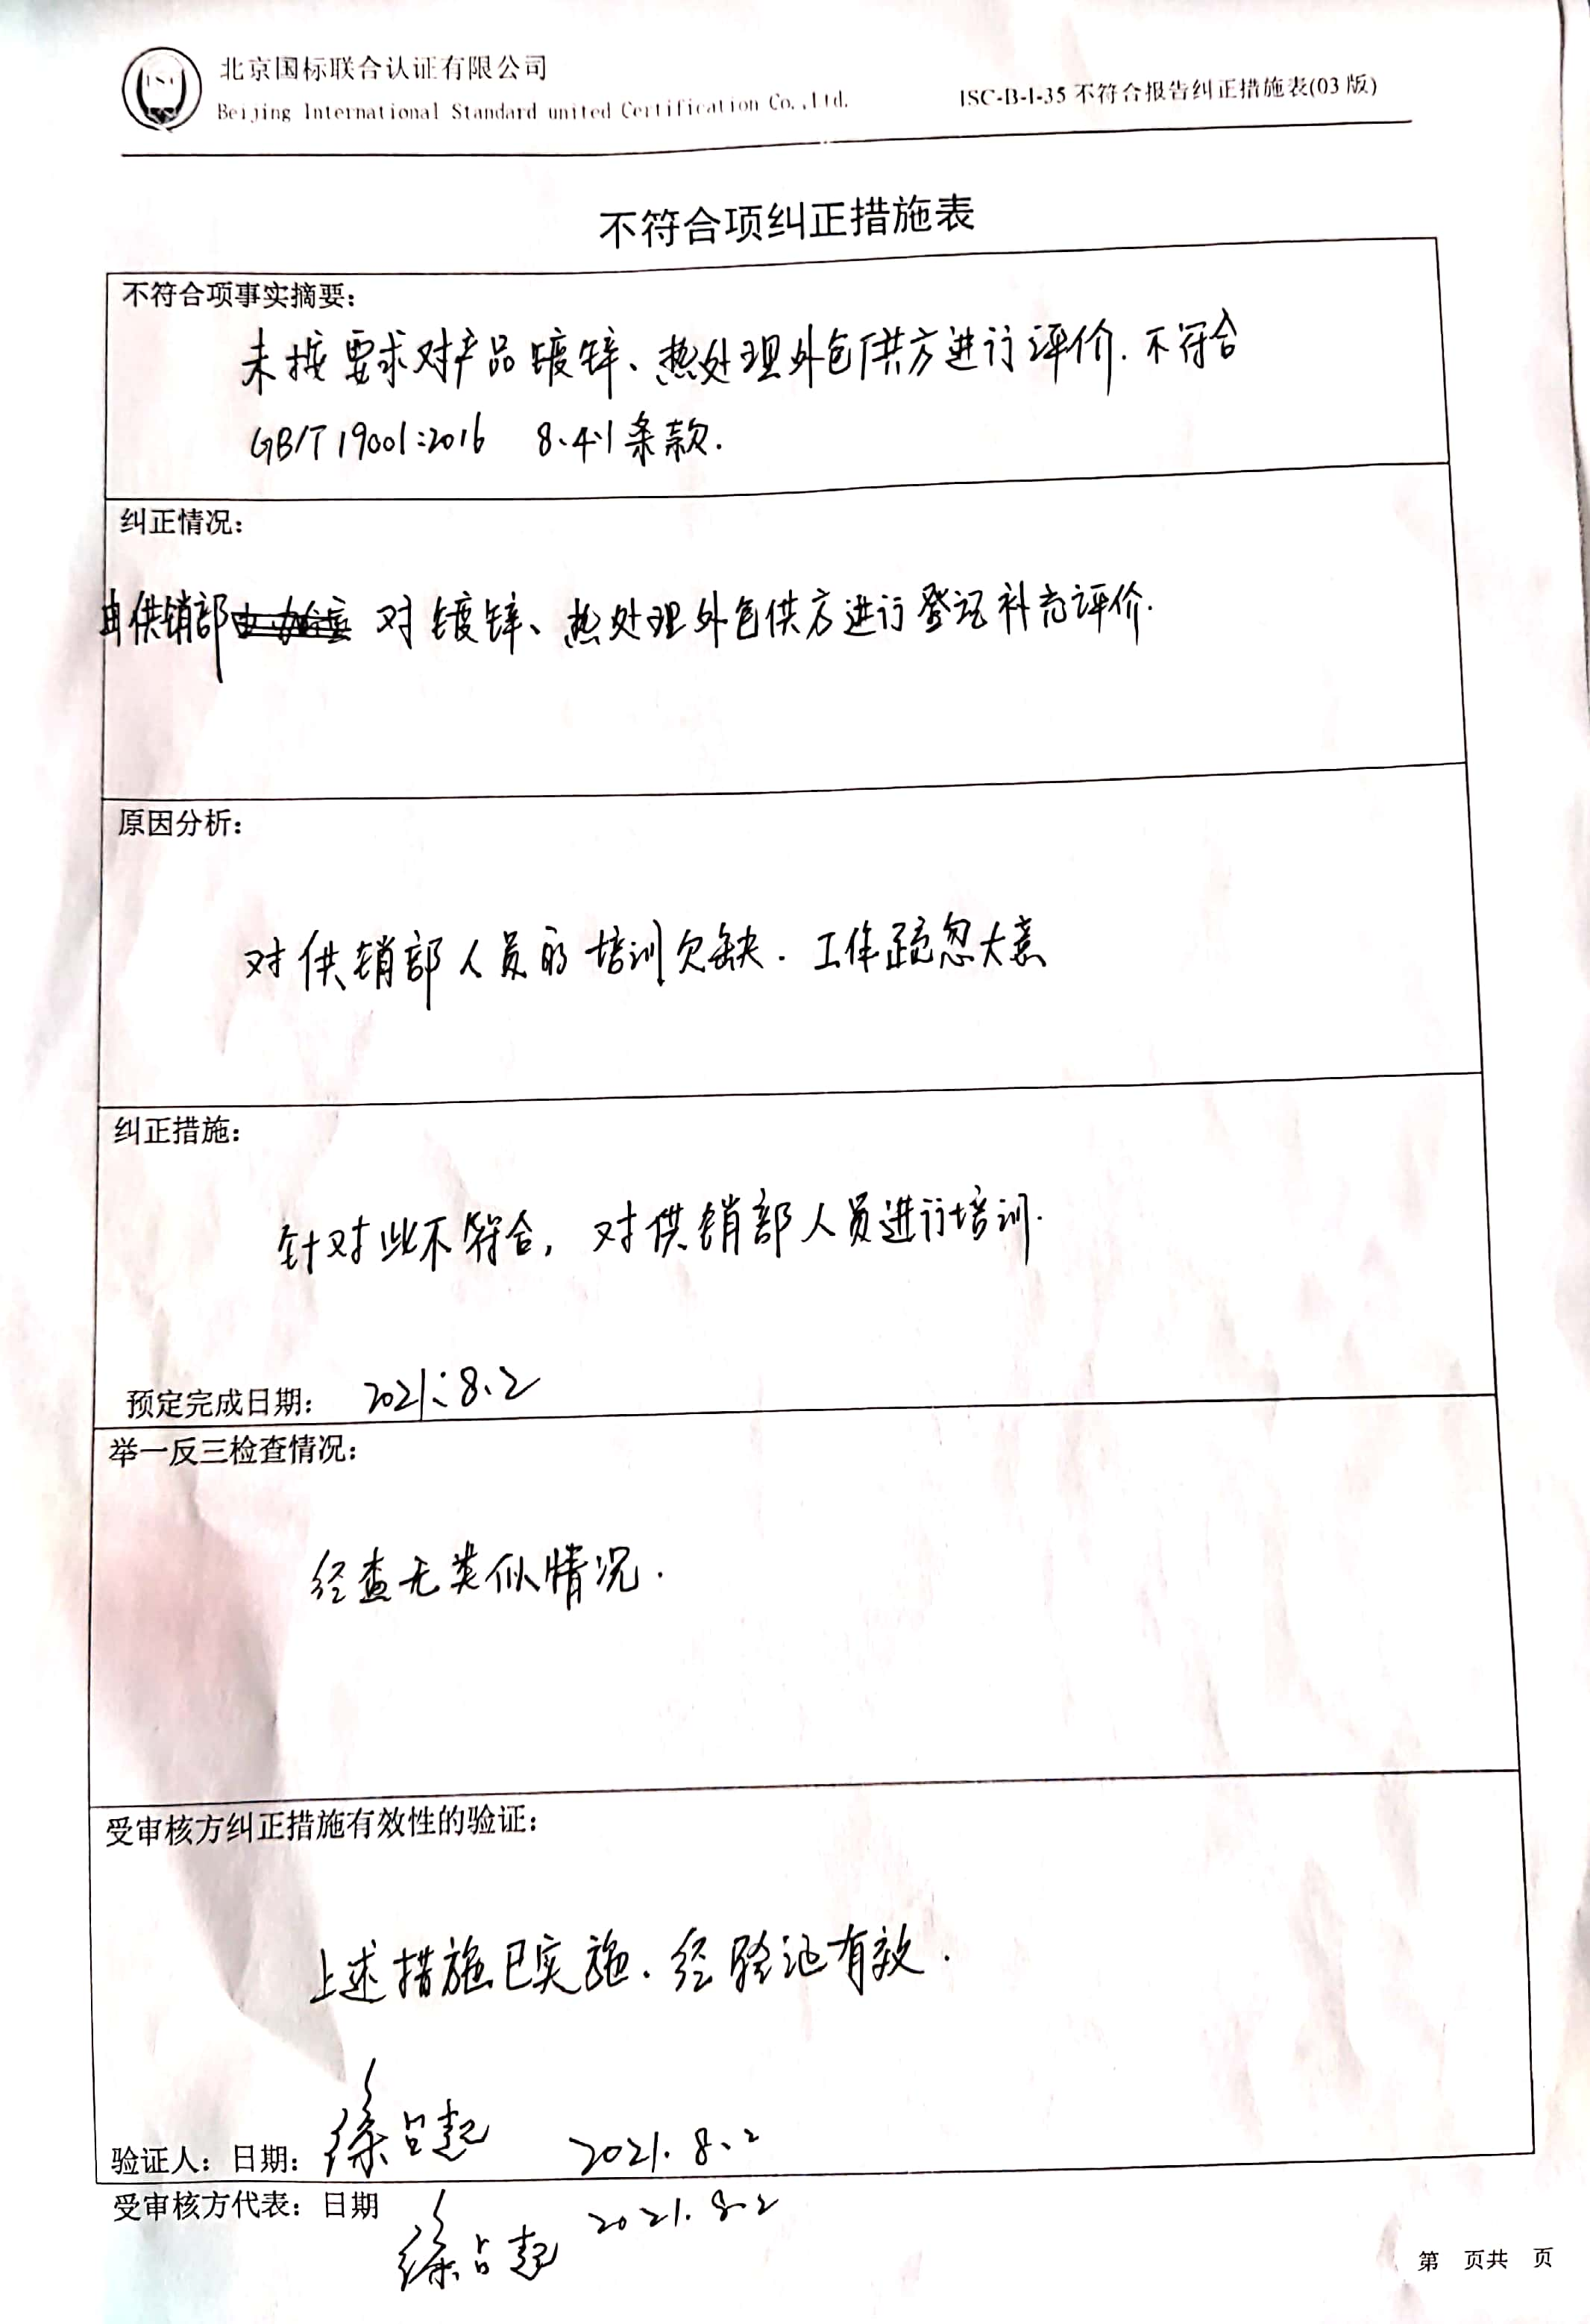 北京国标联合认证有限公司
Beijing International Standard united Certification Co.,Ltd.
ISC-B-I-35 不符合报告纠正措施表(03 版)
不符合项纠正措施表
不符合项事实摘要:
未按要求对产品镀锌、热处理外包供方进行评价.不符合
GB/T 19001:2016 8.4.1条款.
纠正情况:
由供销部 对镀锌、热处理外包供方进行登记补充评价.
原因分析:
对供销部人员的培训欠缺.工作疏忽大意
纠正措施:
针对此不符合,对供销部人员进行培训.
预定完成日期: 2021.8.2
举一反三检查情况:
经查无类似情况.
受审核方纠正措施有效性的验证:
上述措施已实施.经验证有效.
验证人: 日期: 徐占起 2021.8.2
受审核方代表: 日期 徐占起 2021.8.2
第 页共 页